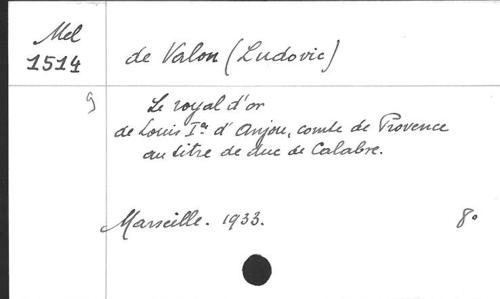 Mel
1514
de Valon (Ludovic)
9
Le royal d'or
de Louis Ier d'Anjou, comte de Provence
au titre de duc de Calabre.
Marseille. 1933. 8º